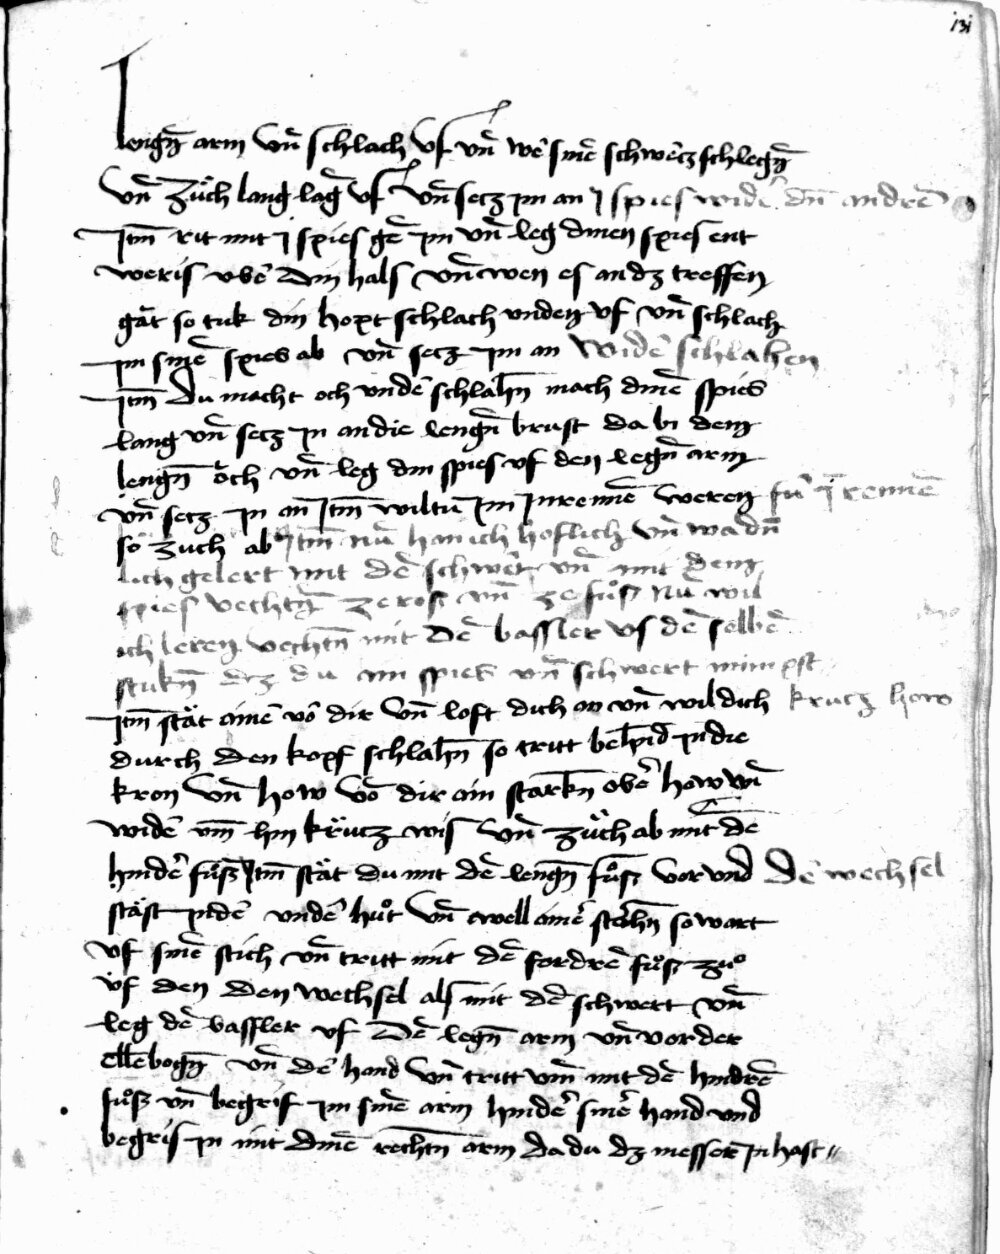 131
lengn̄ arm vn̄ schlach vf vn̄ we᷑ sinē schwe᷑cz schlegn̄
vn̄ zu̍ch lang lag᷑ vf vn̄ secz im an j spies wide᷑ dn̄ andrē
Jtm̄ rit mit j spies gē im vn̄ leg dinen spies ent
weris vbe᷑ din hals vn̄ wen es an dz treffen
gāt so tuk din hopt schlach vnden vf vn̄ schlach
im sinē spies ab vn̄ secz im an wide᷑ schlahen
Jtm̄ Du macht och vnde᷑ schlahn̄ mach dinē spies
lang vn̄ secz in an die lengn̄ brust da bi dem
lengn̄ och vn̄ leg din spies vf den legn̄ arm
vn̄ secz in an Jtm̄ wiltu im In rennē weren fu̍r in rennē
so zuch ab Jtm̄ nu᷑ han ich hoflich vn̄ wadn̄
lich gelert mit dē schwe᷑t vn̄ mit dem
spies vechtn̄ ze ross vn̄ ze fůss Nu᷑ wil
ich leren vechtn̄ mit dē bassler vs dē selbē
stukn̄ dz du im spies vn̄ schwert nimpst
Jtm̄ stāt ainē vō dir vn̄ loft dich an vn̄ wil dich krucz how
durch den kopf schlahn̄ so tritt behind in die
kron vn̄ how vō dir ain starkn̄ obe᷑ how vn̄
wide᷑ vm̄ hin kru̍cz wis vn̄ zu̍ch ab mit dē
hinde᷑ fůss Jtm̄ stāt du mit dē lengn̄ fůss vor vnd Dē wechsel
stāst in de᷑ vnde᷑ hůt vn̄ well aine᷑ stēhn̄ so wart
vf sinē stich vn̄ tritt mit dē fordrē fůss zů
vf den den wechsel als mit dē schwert vn̄
leg dē bassler vf dē legn̄ arm vn̄ vor der
ellebogn̄ vn̄ de᷑ hand vn̄ tritt vm̄ mit dē hindrē
fůss vn̄ begrif im sinē arm hinde᷑ sine᷑ hand vnd
begris in mit dinē rechtn̄ arm da du dz messer in hast